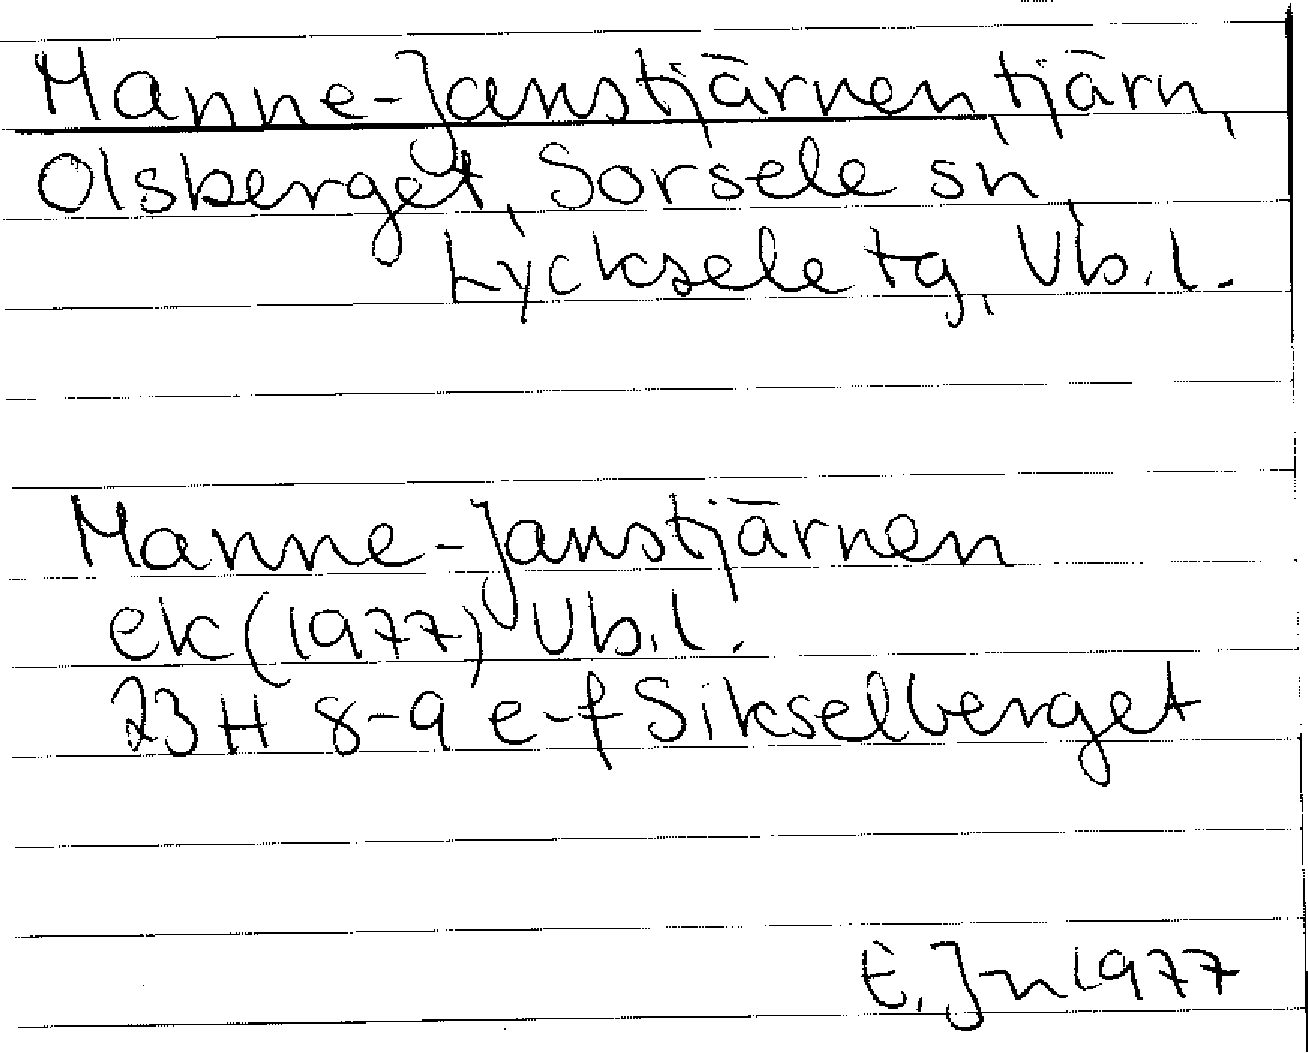 Manne-Janstjärnen, tjärn,
Olsberget, Sorsele sn,
Lycksele tg, Vb.l.
Manne-Janstjärnen
ek (1977) Vb.l.
23 H 8-9 e-f Sikselberget
E. Jn 1977